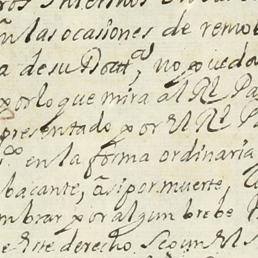 las ocasiones de remo
a de su Doctª, no pueda
por lo que mira al Rl. Pa
presentado por el Rl. P
en la forma ordinaria
bacante, asi por muerte,
mbrar por algun brebe
este derecho. Segun el